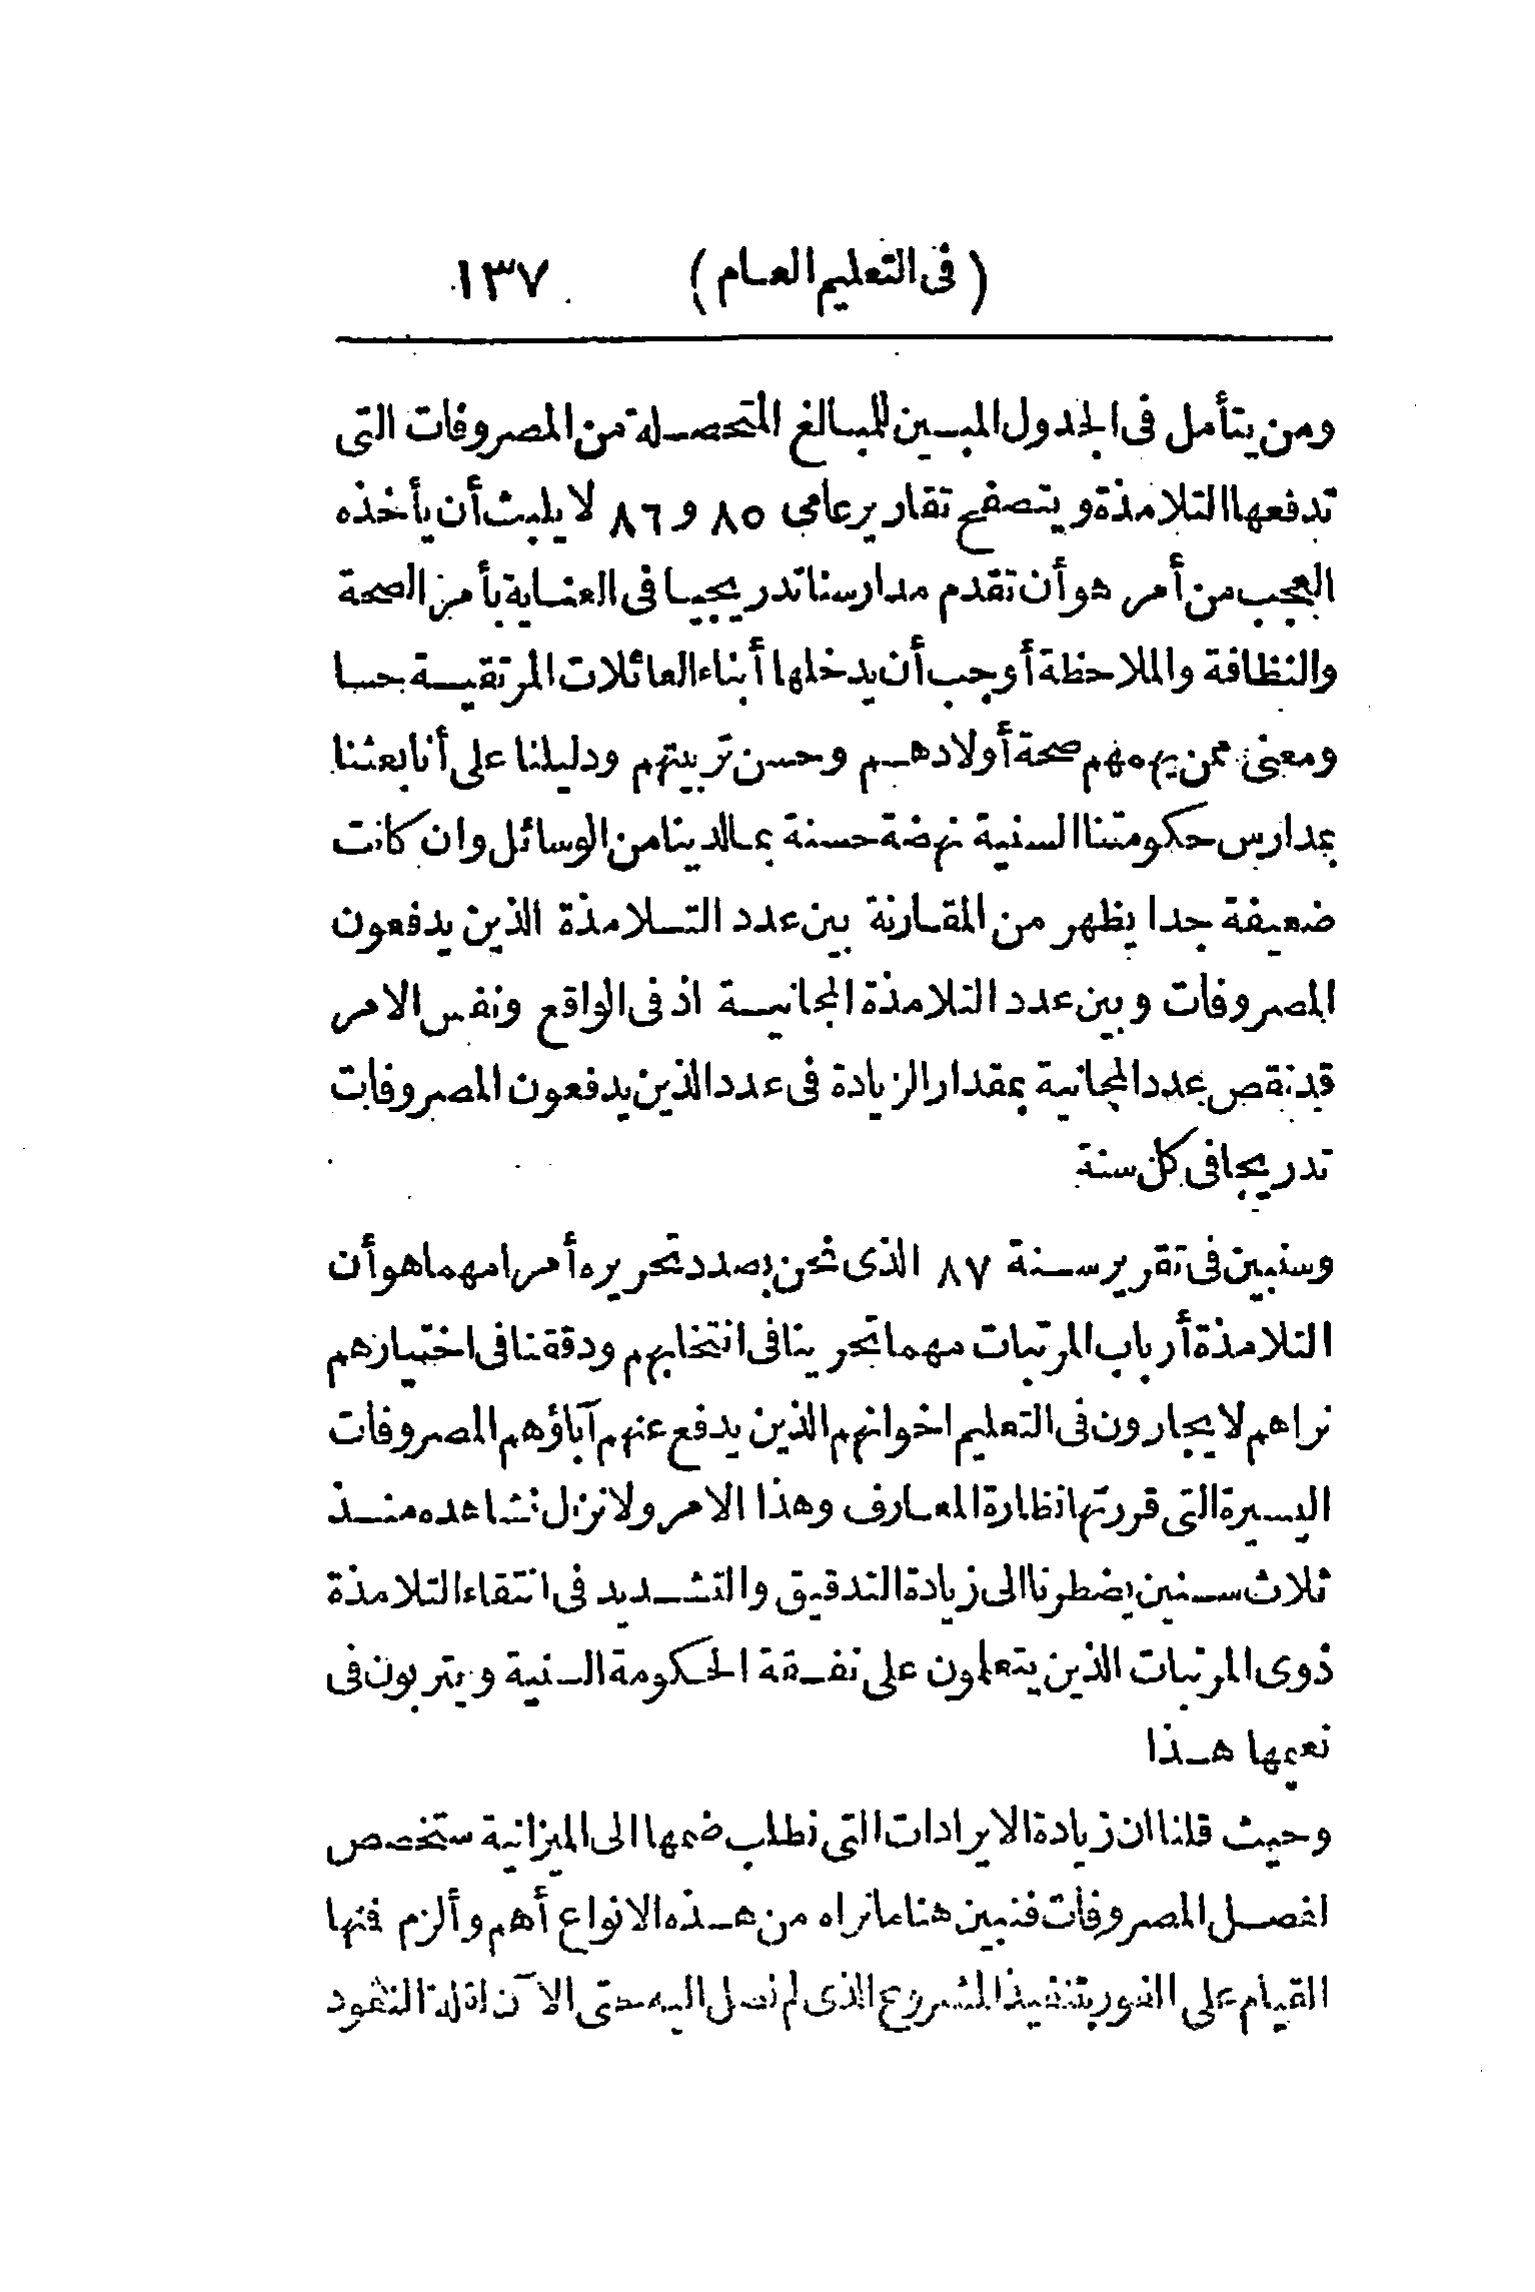 (فى التعليم العام) ١٣٧
ومن يتأمل فى الجدول المبين للمبالغ المتحصلة من المصروفات التى
تدفعها التلامذة ويتصفح تقارير عامى ٨٥ و ٨٦ لا يلبث أن يأخذه
العجب من أمر هو أن تقدم مدارسنا تدريجيا فى العناية بأمر الصحة
والنظافة والملاحظة أوجب أن يدخلها أبناء العائلات المرتقية حسا
ومعنى ممن يهمهم صحة أولادهم وحسن تربيتهم ودليلنا على أنا بعثنا
بمدارس حكومتنا السنية نهضة حسنة بما لدينا من الوسائل وان كانت
ضعيفة جدا يظهر من المقارنة بين عدد التلامذة الذين يدفعون
المصروفات وبين عدد التلامذة المجانية اذ فى الواقع ونفس الامر
قد نقص عدد المجانية بمقدار الزيادة فى عدد الذين يدفعون المصروفات
تدريجا فى كل سنة
وسنبين فى تقرير سنة ٨٧ الذى نحن بصدد تحريره أمرا مهما هو أن
التلامذة أرباب المرتبات مهما تحرينا فى انتخابهم ودققنا فى اختيارهم
نراهم لا يجارون فى التعليم اخوانهم الذين يدفع عنهم آباؤهم المصروفات
اليسيرة التى قررتها نظارة المعارف وهذا الامر ولا نزال نشاهده منذ
ثلاث سنين يضطرنا الى زيادة التدقيق والتشديد فى انتقاء التلامذة
ذوى المرتبات الذين يتعلمون على نفقة الحكومة السنية ويتربون فى
نعيمها هذا
وحيث قلنا ان زيادة الايرادات التى نطلب ضمها الى الميزانية ستخصص
لفصل المصروفات فنبين هنا ما نراه من هذه الانواع أهم وألزم فنها
القيام على الفور بتنفيذ المشروع الذى لم نصل اليه حتى الآن لقلة النقود